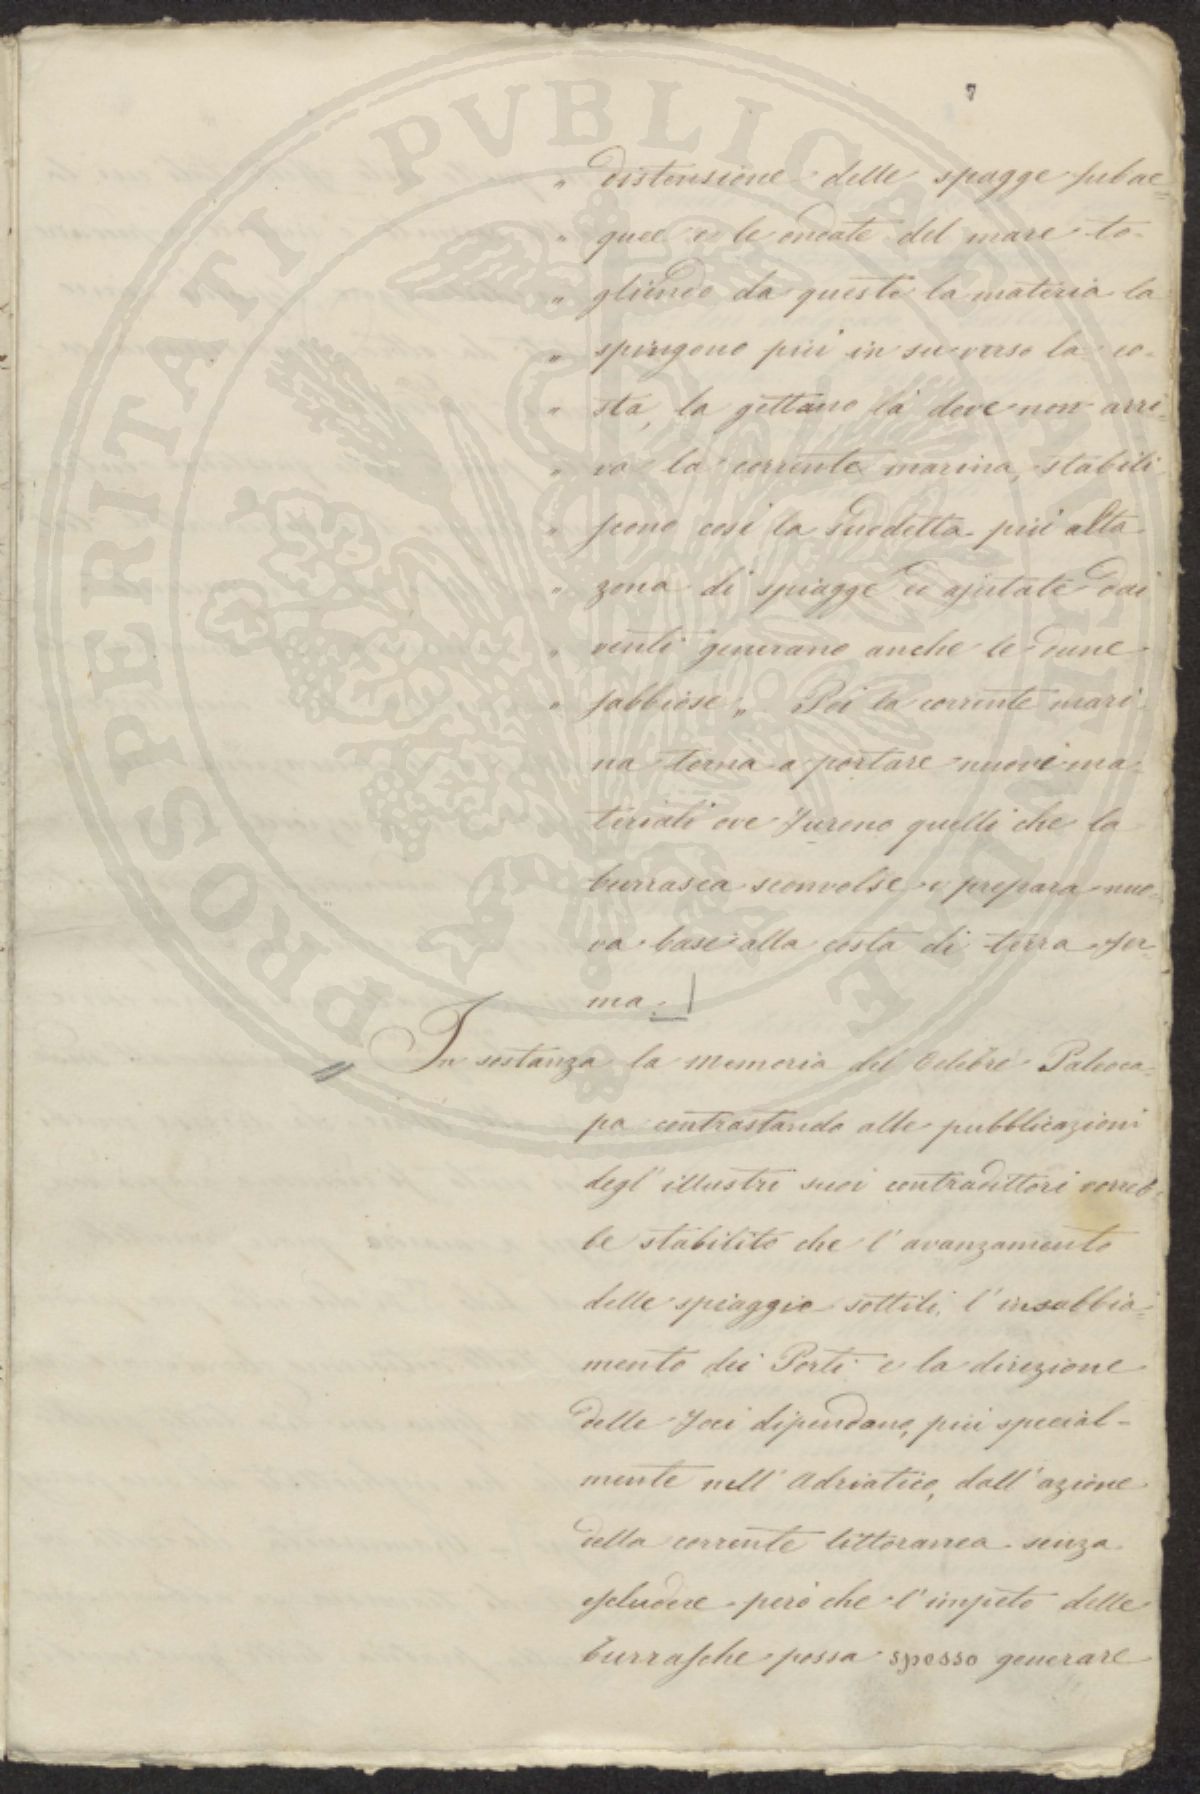 7
„ distensione delle spagge subac=
„ quee e le ondate del mare to-
„ gliendo da queste la materia la
„ spingono più in su verso la co-
„ sta, la gettano là dove non arri-
„ va la corrente marina, stabili
„ scono così la suddetta più alta
„ zona di spiagge ed ajutate dai
„ venti generano anche le dune
„ sabbiose „ Poi la corrente mari-
na torna a portare nuovi ma-
teriali ove furono quelli che la
burrasca sconvolse e prepara nuo-
va base alla costa di terra fer-
ma.
In sostanza la memoria del celebre Paleoca-
pa contrastando alle pubblicazioni
degl' illustri suoi contradittori vorreb-
be stabilito che l' avanzamento
delle spiaggie sottili, l' insabbia-
mento dei Porti e la direzione
delle foci dipendano, più special-
mente nell' Adriatico, dall' azione
della corrente littoranea senza
escludere però che l' impeto delle
burrasche possa spesso generare
PROSPERITATI PVBLICAE